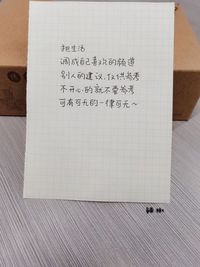 把生活
调成自己喜欢的频道
别人的建议,仅供参考
不开心的就不要参考
可有可无的一律可无~